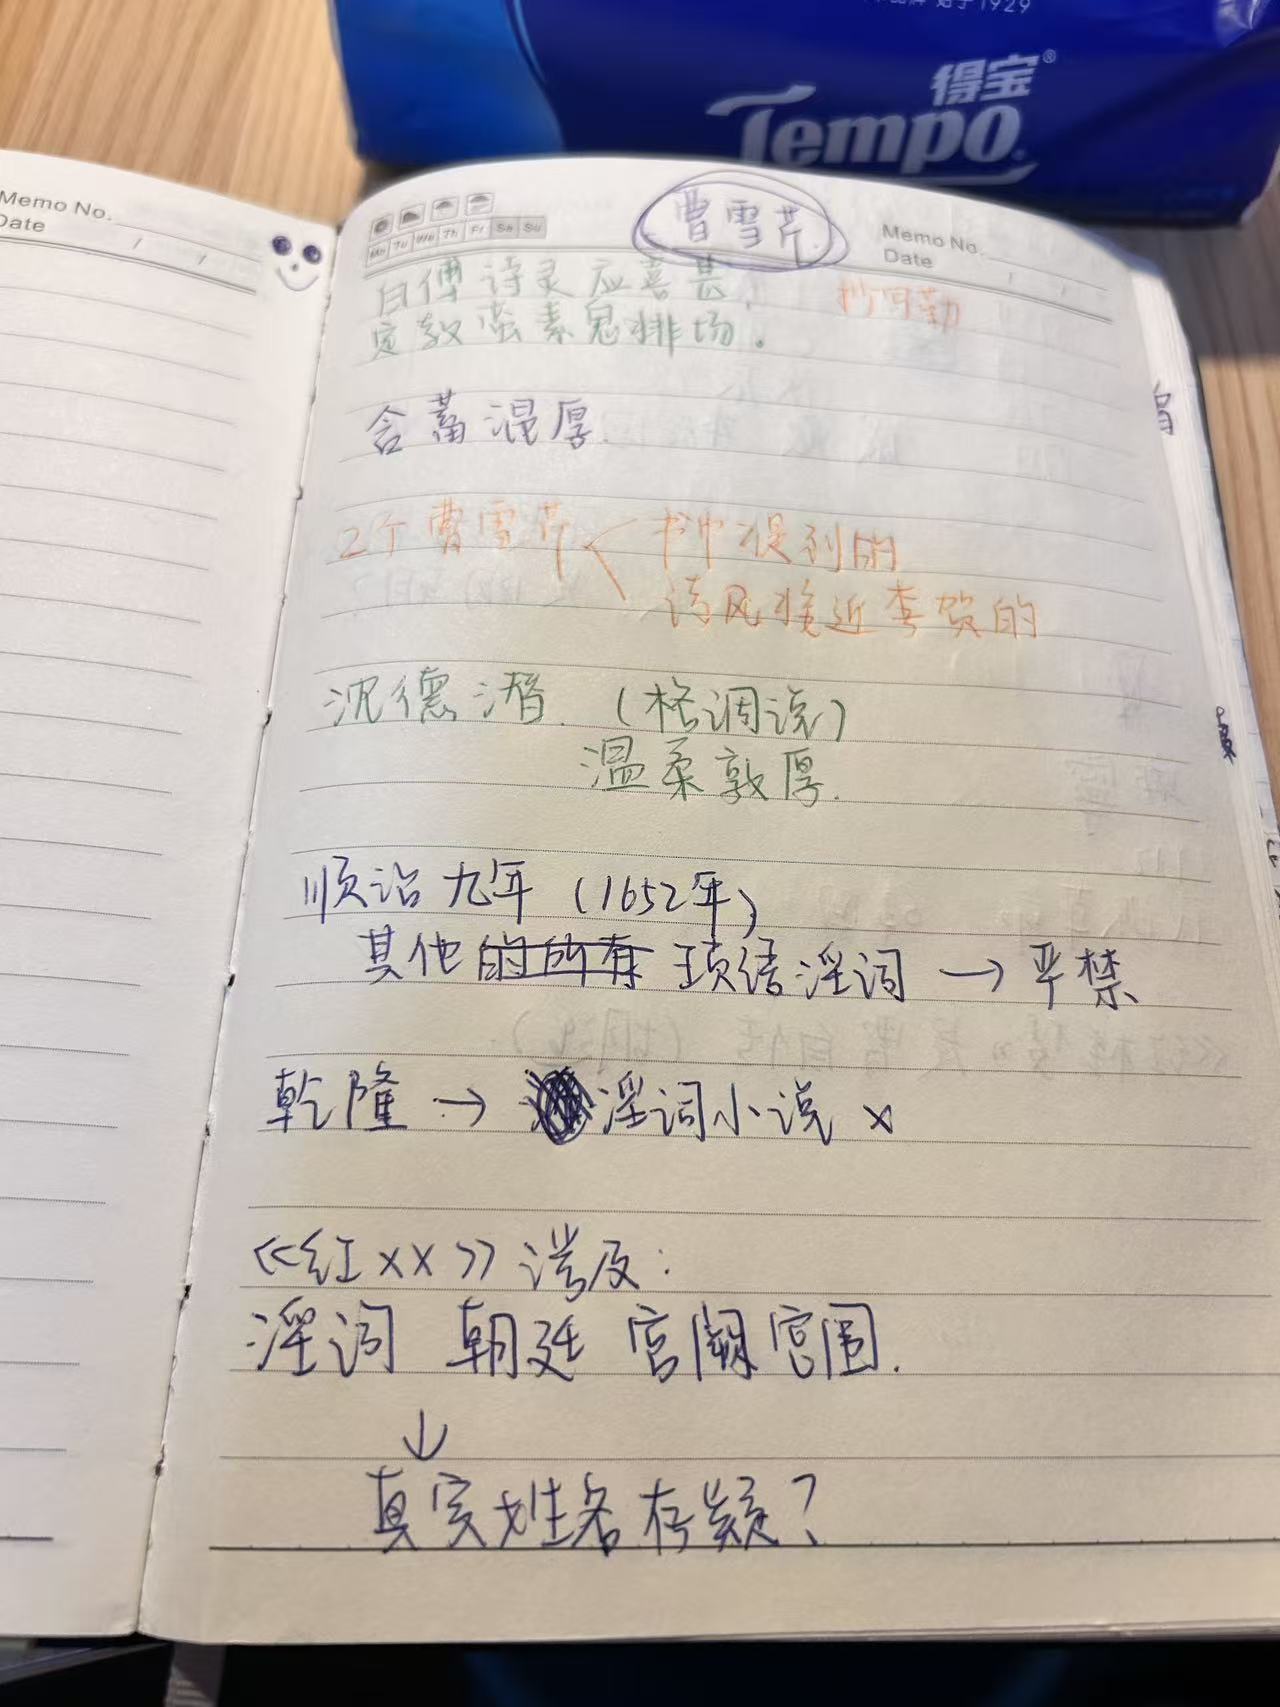 得宝®
Tempo
Memo No.
Date
Mo Tu We Th Fr Sa Su
曹雪芹
Memo No.
Date
白傅诗灵应喜甚,
定教蛮素鬼排场。
含蓄混厚.
2个曹雪芹
书中提到的
诗风接近李贺的
沈德潜. (格调说)
温柔敦厚.
顺治九年 (1652年)
其他的所有琐语淫词 → 严禁
乾隆 → 淫词小说 ×
《红××》涉及:
淫词 朝廷 宫闱.
↓
真实姓名存疑?